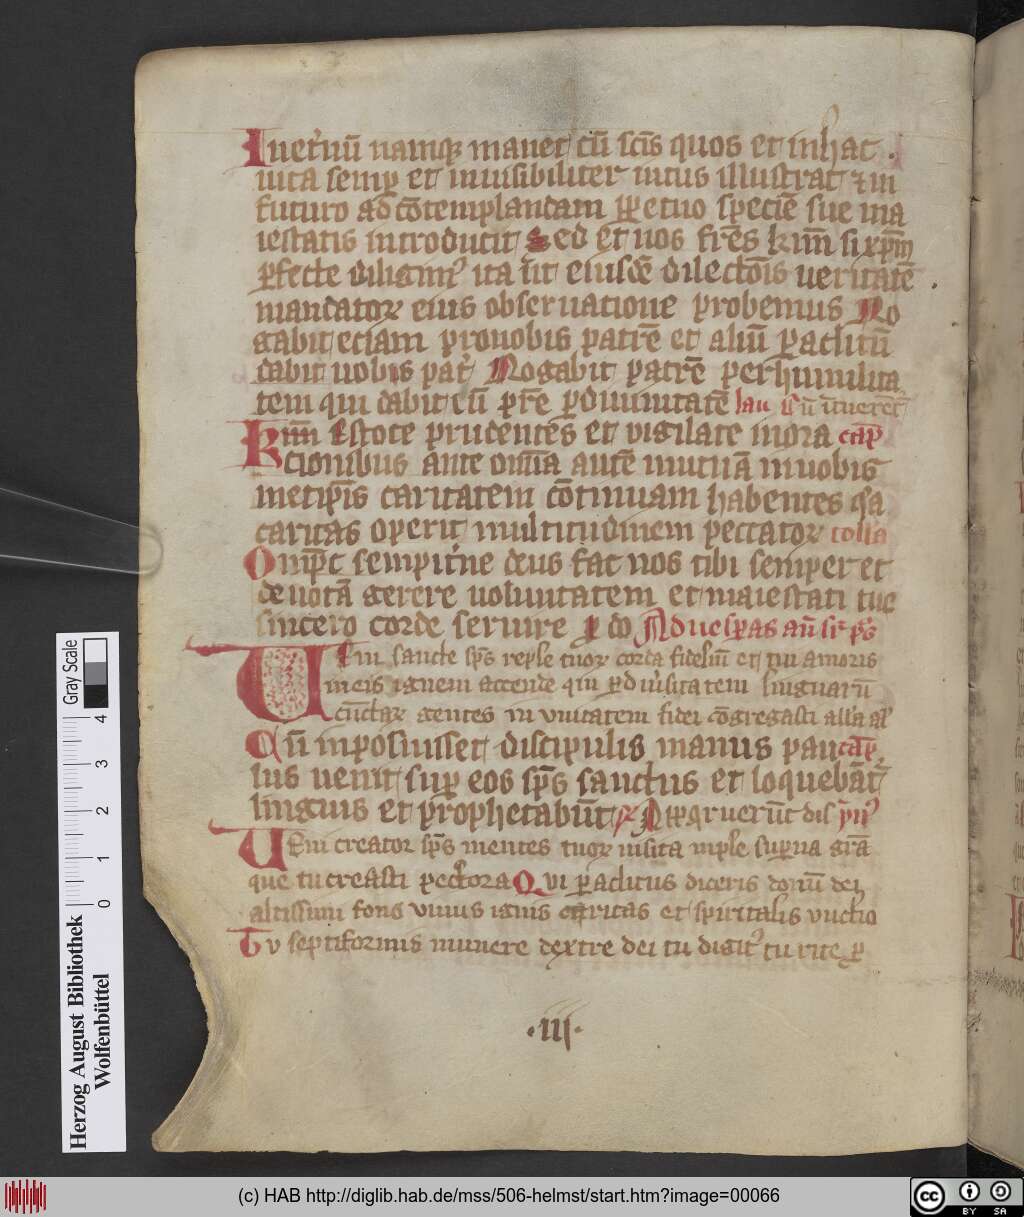 Inet'nū namq manet cū scīs quos et inhat .
uita semp et inuisibiliter intus illustrat et in
futuro ad cōtemplandam ppetuo speciē sue ma
iestatis introducit Sed et nos frēs kmī si xpm
pfecte diligim' ita ut eiusdē dilectōis ueritatē
mandator eius obseruatione probemus Ro
gabit eciam pro uobis patrē et aliū paclitū
dabit uobis pat' Rogabit patrē per humilita
tem qui dabit cū prē p diuinitatē lau
Kmī Estote prudentes et vigilate in ora cap
cionibus ante omīa autē mutuā in uobis
metipīs caritatem cōtinuam habentes qa
caritas operit multitudinem peccator colla
Omps sempitne deus fac nos tibi semper et
deuotā gerere uoluntatem et maiestati tue
sincero corde seruire p do Ad uespas an sr ps
Veni sancte sps reple tuor corda fideliū et tui amoris
in eis ignem accende qui p diusitatem linguarū
cūctar gentes in vnitatem fidei cōgregasti alla al'
Cū inposuisset discipulis manus pau cap
lus uenit sup eos sps sanctus et loquebāt
linguis et prophetabūt R Apparuerūt dis ymn'
Veni creator sps mentes tuor uisita imple superna grā
que tu creasti pectora Qvi paclitus diceris donū dei
altissimi fons viuus ignis caritas et spiritalis vnctio
Tv septiformis munere dextre dei tu digit' tu rite p
· iii ·
Herzog August Bibliothek
Wolfenbüttel
Gray Scale
0 1 2 3 4
(c) HAB http://diglib.hab.de/mss/506-helmst/start.htm?image=00066
cc BY SA